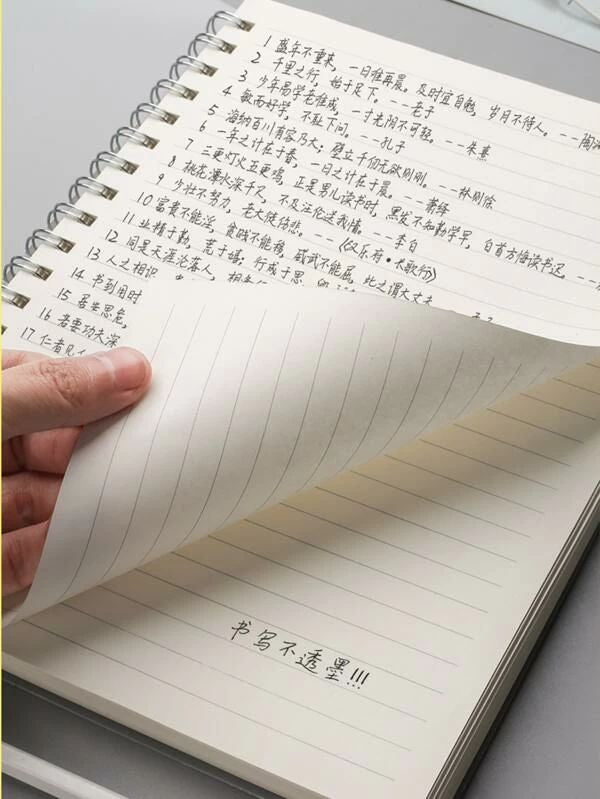 1 盛年不重来，一日难再晨。及时宜自勉，岁月不待人。---陶渊
2 千里之行，始于足下。---老子
3 少年易学老难成，一寸光阴不可轻。---朱熹
4 敏而好学，不耻下问。---孔子
5 海纳百川有容乃大，壁立千仞无欲则刚。---林则徐
6 一年之计在于春，一日之计在于晨。---萧绎
7 三更灯火五更鸡，正是男儿读书时，黑发不知勤学早，白首方悔读书迟。---
8 桃花潭水深千尺，不及汪伦送我情。---李白
9 少壮不努力，老大徒伤悲。---《汉乐府·长歌行》
10 富贵不能淫，贫贱不能移，威武不能屈，此之谓大丈夫
11 业精于勤，荒于嬉；行成于思，毁
12 同是天涯沦落人，相逢
13 人之相识，
14 书到用时
15 居安思危，
16 若要功夫深
17 仁者见
书写不透墨!!!